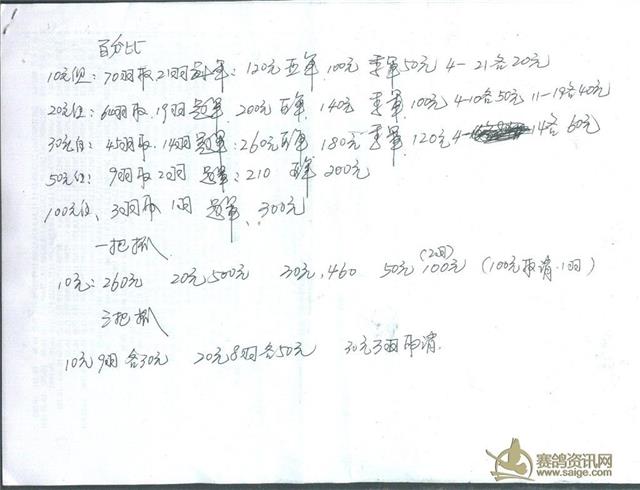 百分比
10元组:70羽取21羽冠军:120元亚军100元季军50元4-21各20元
20元组:64羽取19羽冠军200元亚军140元季军100元4-10各50元11-19各40元
30元组:45羽取14羽冠军:260元亚军180元季军120元4-14各60元
50元组:9羽取2羽冠军:210亚军200元
100元组、3羽取1羽冠军、300元
一把抓
10元:260元 20元500元 30元,460 50元100元(2羽) (100元取消.1羽)
三把抓
10元9羽各30元 20元8羽各50元 30元3羽取消.
赛鸽资讯网
www.saige.com